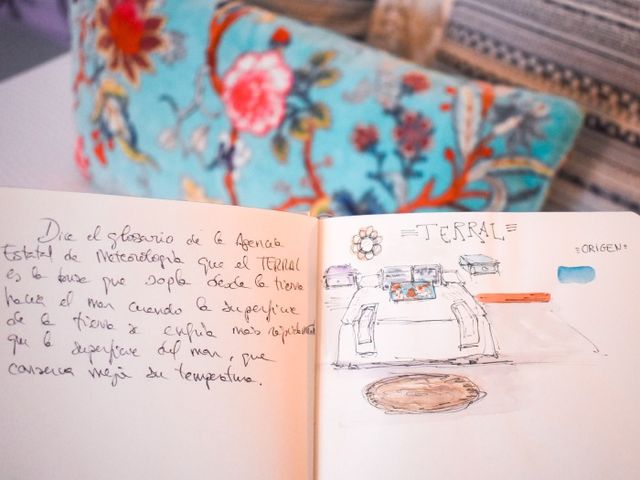 Dice el glosario de la Agencia
Estatal de Meteorología que el TERRAL
es la brisa que sopla desde la tierra
hacia el mar cuando la superficie
de la tierra se enfría más rápidamente
que la superficie del mar, que
conserva mejor su temperatura.
=TERRAL=
=ORIGEN=